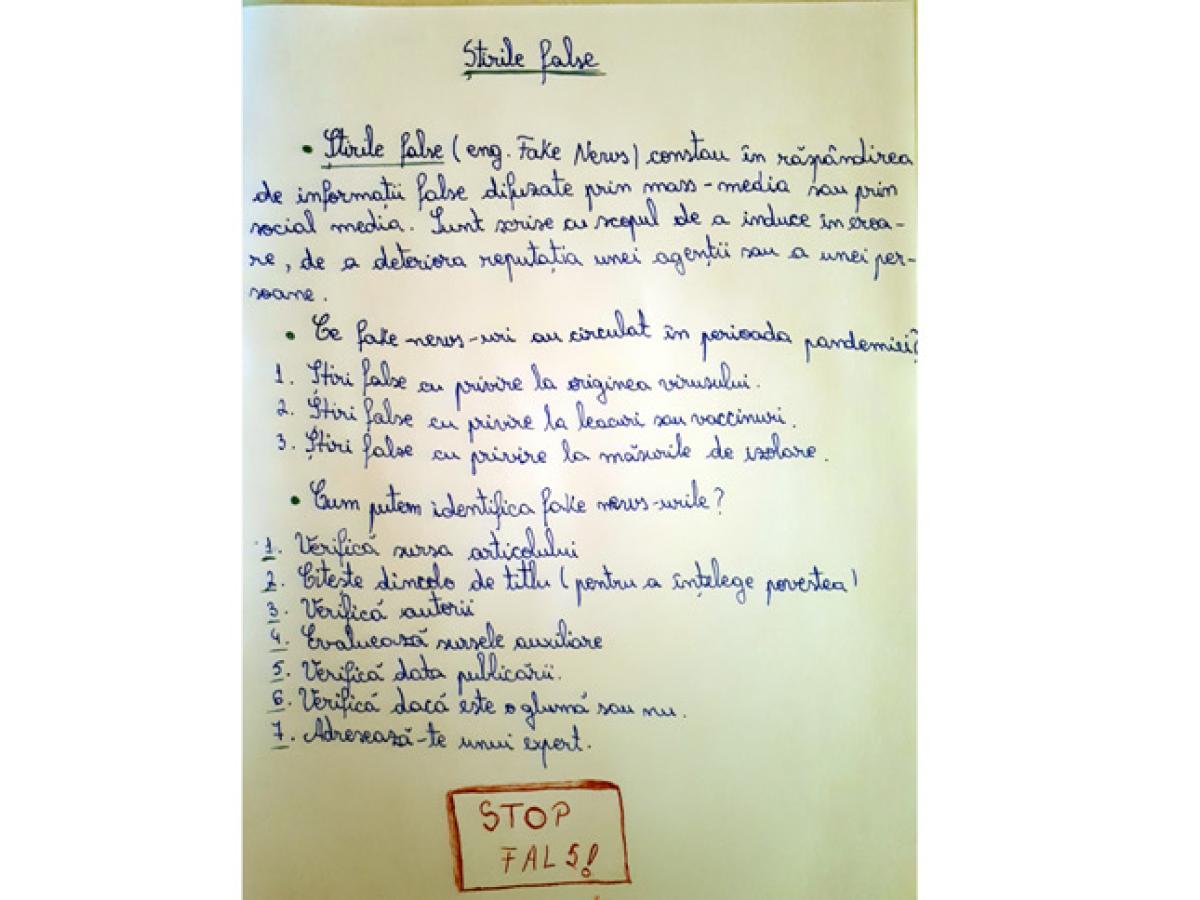 Știrile false
• Știrile false (eng. Fake News) constau în răspândirea
de informații false difuzate prin mass-media sau prin
social media. Sunt scrise cu scopul de a induce în eroa-
re, de a deteriora reputația unei agenții sau a unei per-
soane.
• Ce fake-news-uri au circulat în perioada pandemiei?
1. Știri false cu privire la originea virusului.
2. Știri false cu privire la leacuri sau vaccinuri.
3. Știri false cu privire la măsurile de izolare.
• Cum putem identifica fake news-urile?
1. Verifică sursa articolului
2. Citește dincolo de titlu (pentru a înțelege povestea)
3. Verifică autorii
4. Evaluează sursele auxiliare
5. Verifică data publicării.
6. Verifică dacă este o glumă sau nu.
7. Adresează-te unui expert.
STOP
FALS!